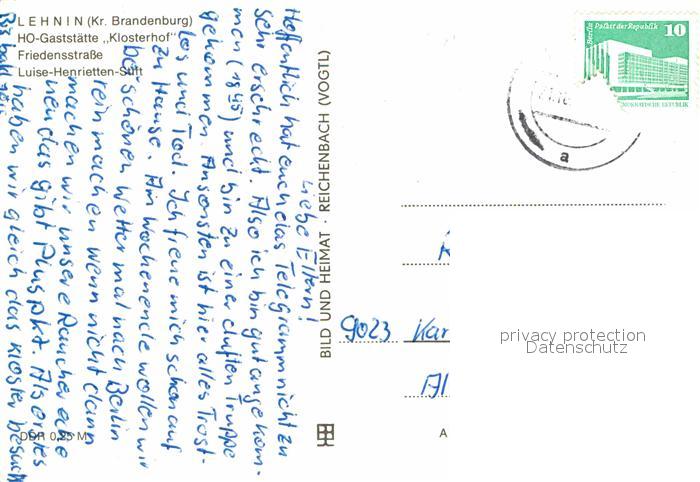 LEHNIN (Kr. Brandenburg)
HO-Gaststätte „Klosterhof"
Friedensstraße
Luise-Henrietten-Stift
Liebe Eltern!
Hoffentlich hat euch das Telegramm nicht zu
sehr erschreckt. Also ich bin gut angekom-
men (1845) und bin zu einer duften Truppe
gekommen. Ansonsten ist hier alles Trost-
los und Tod. Ich freue mich schon auf
zu Hause. Am Wochenende wollen wir
bei schönen Wetter mal nach Berlin
rein machen wenn nicht dann
machen wir unsere Raucherecke
neu das gibt Pluspkt. Als erstes
haben wir gleich das Kloster besucht
Bis bald
DDR 0,25 M
BILD UND HEIMAT · REICHENBACH (VOGTL)
Berlin Palast der Republik
10
DEMOKRATISCHE REPUBLIK
a
9023 Kar
Al
A
privacy protection
Datenschutz